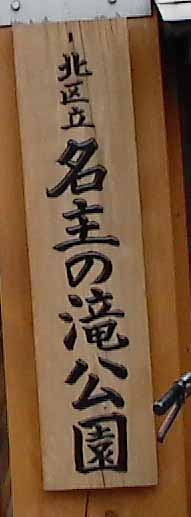 北区立
名主の滝公園